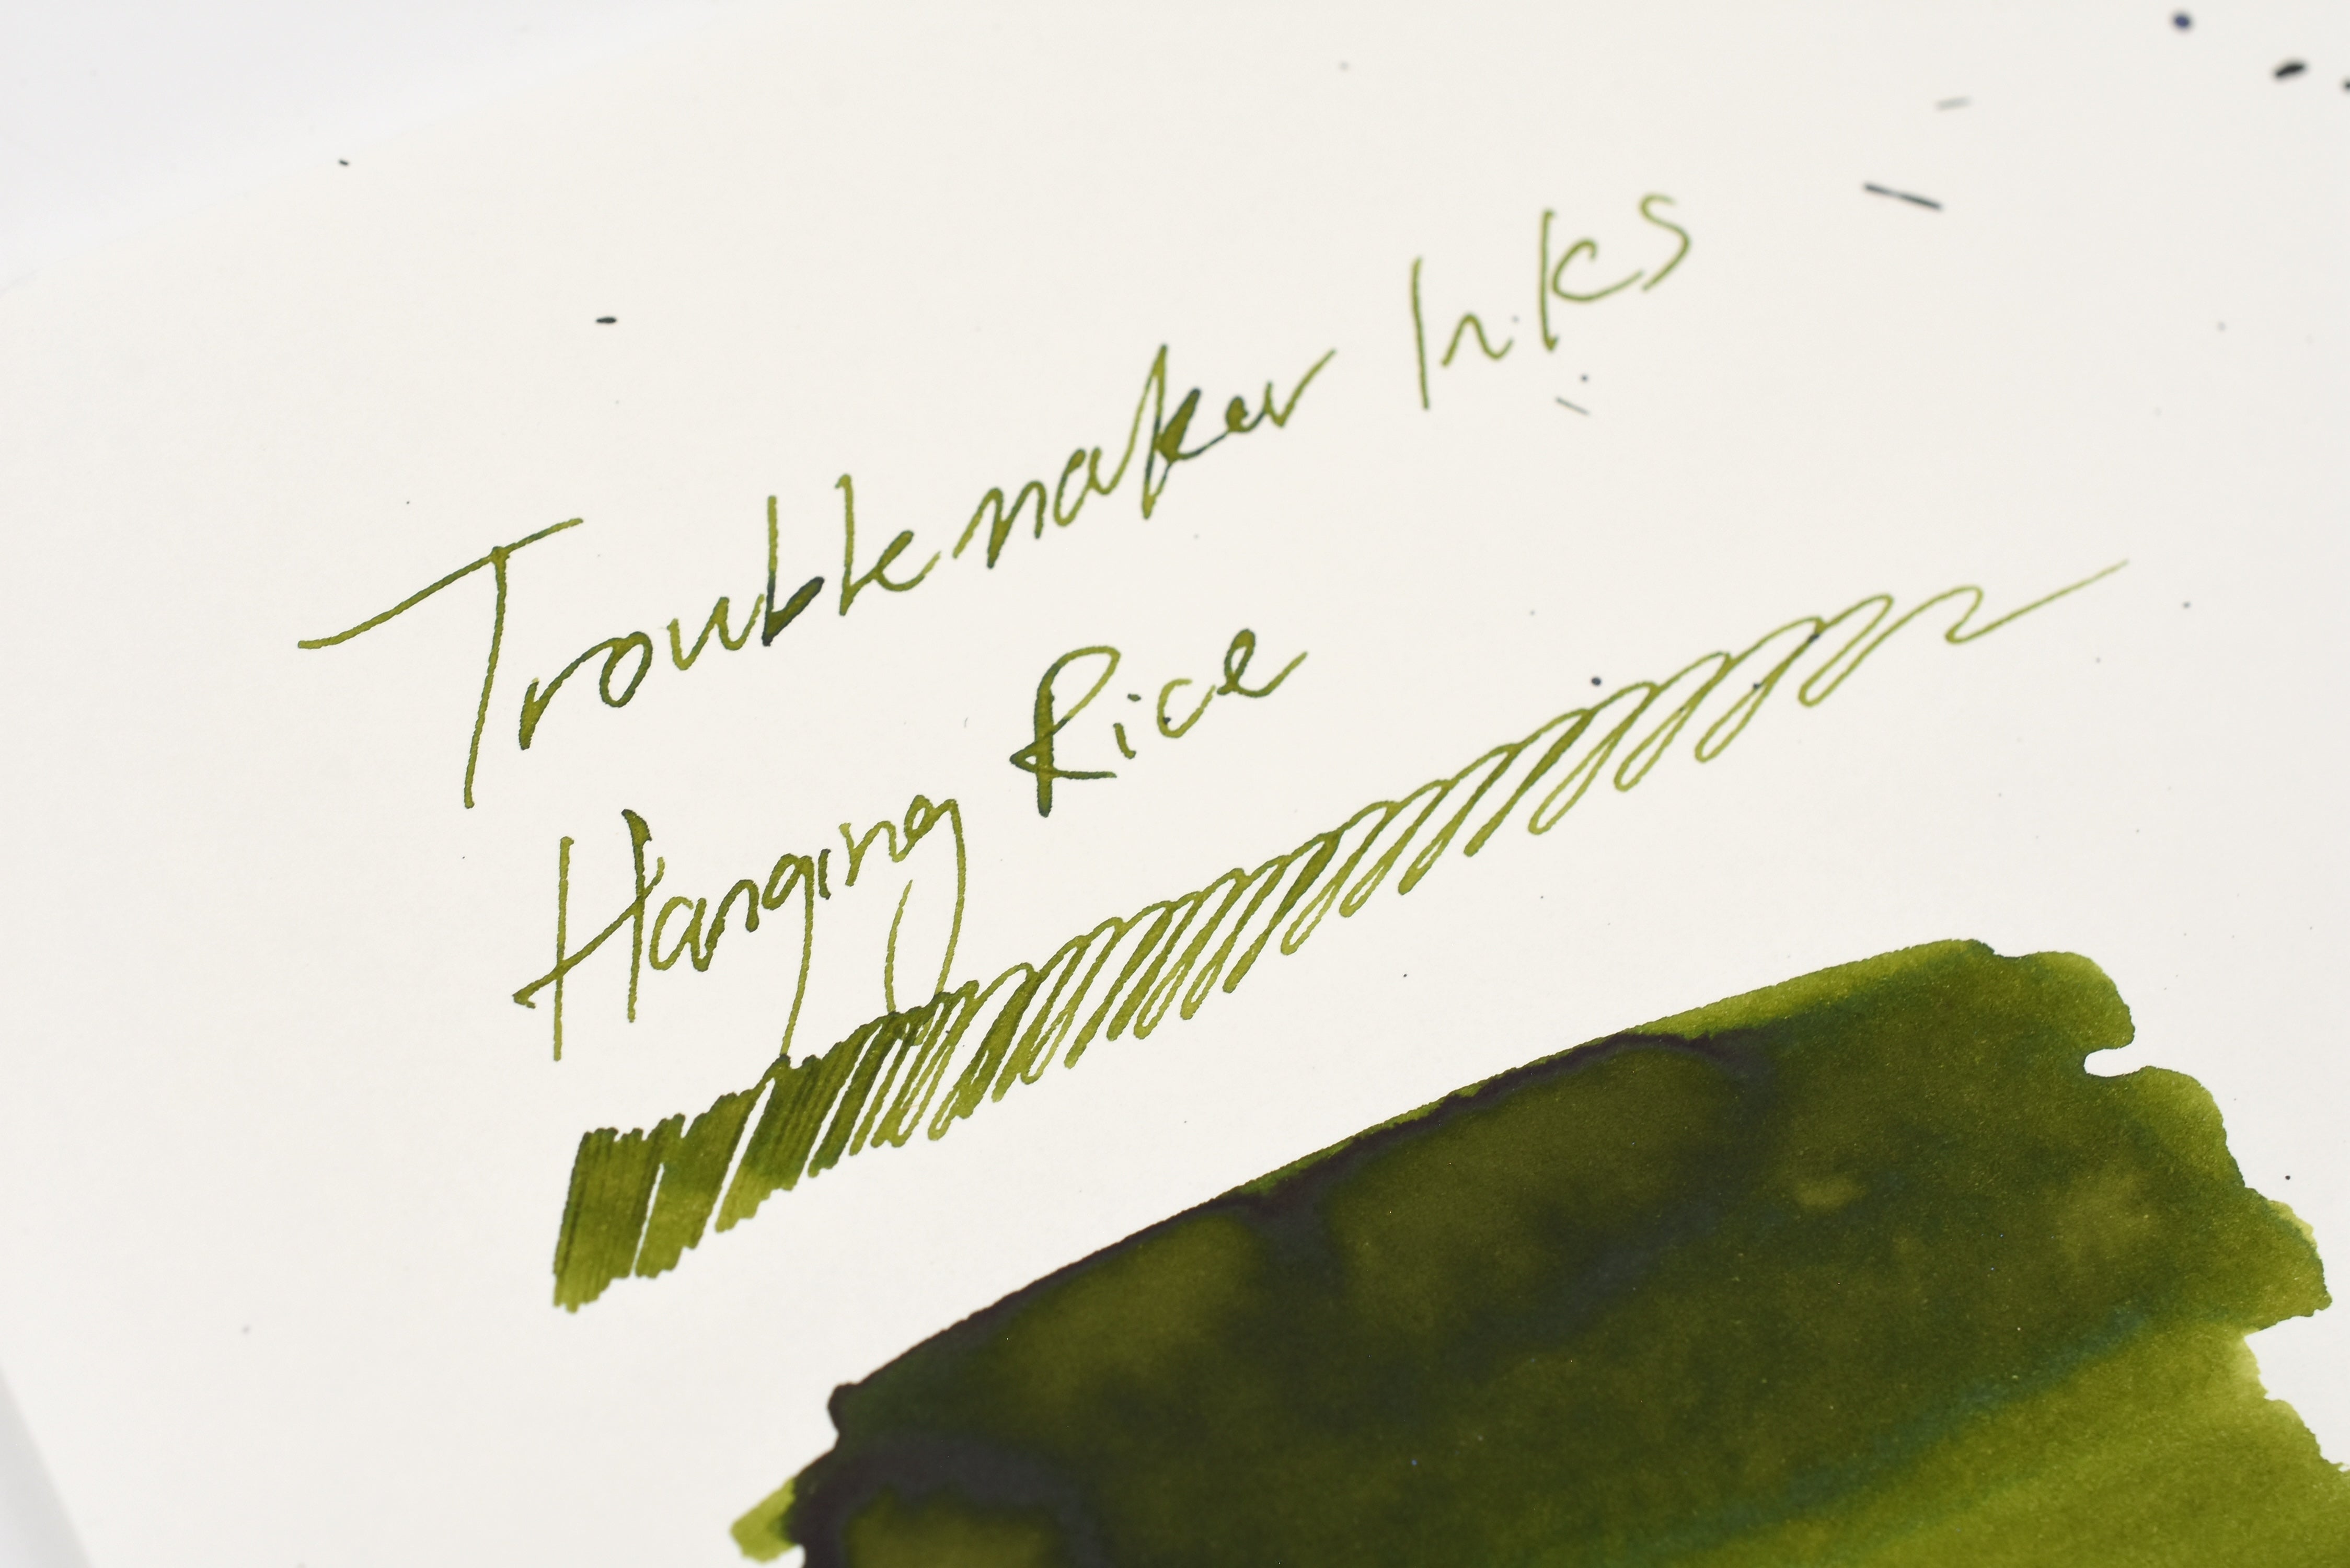 Troublemaker Inks
Hanging Rice